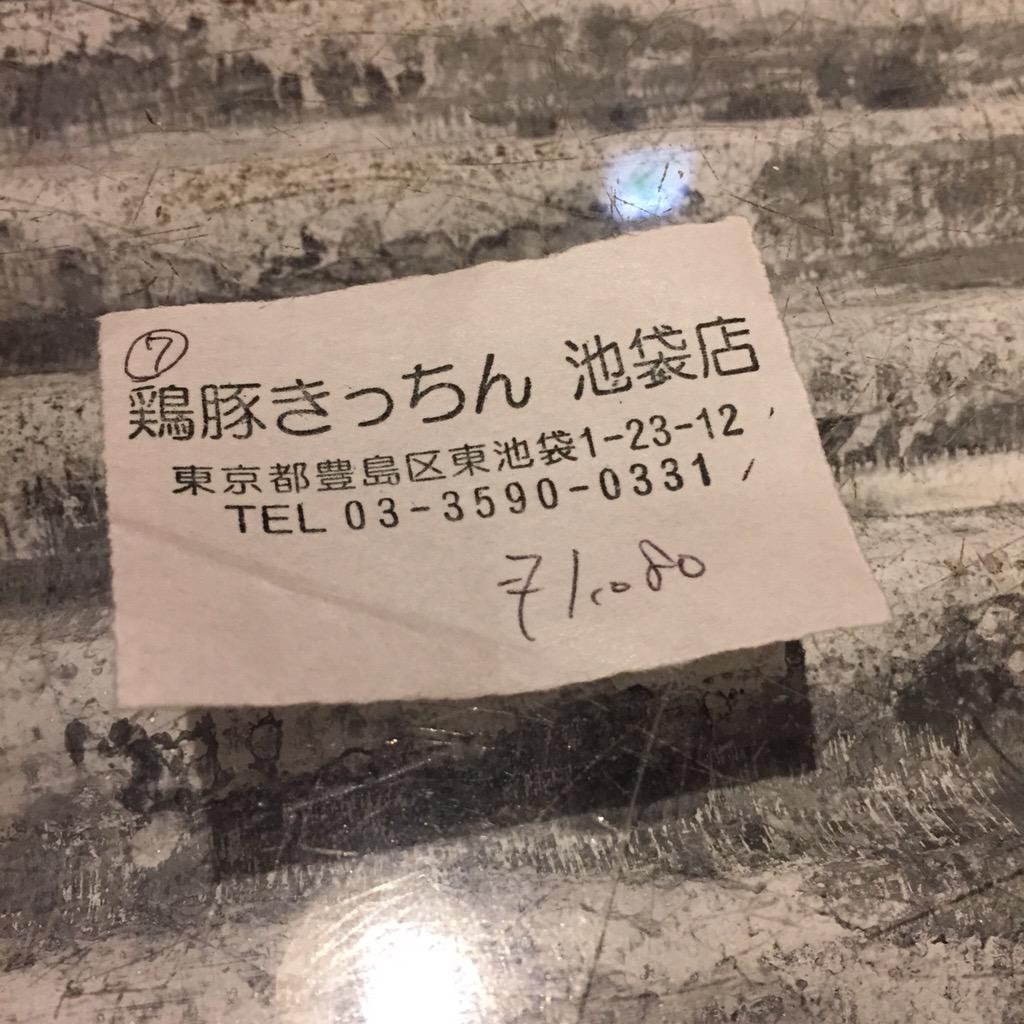 ⑦
鶏豚きっちん 池袋店
東京都豊島区東池袋1-23-12
TEL 03-3590-0331